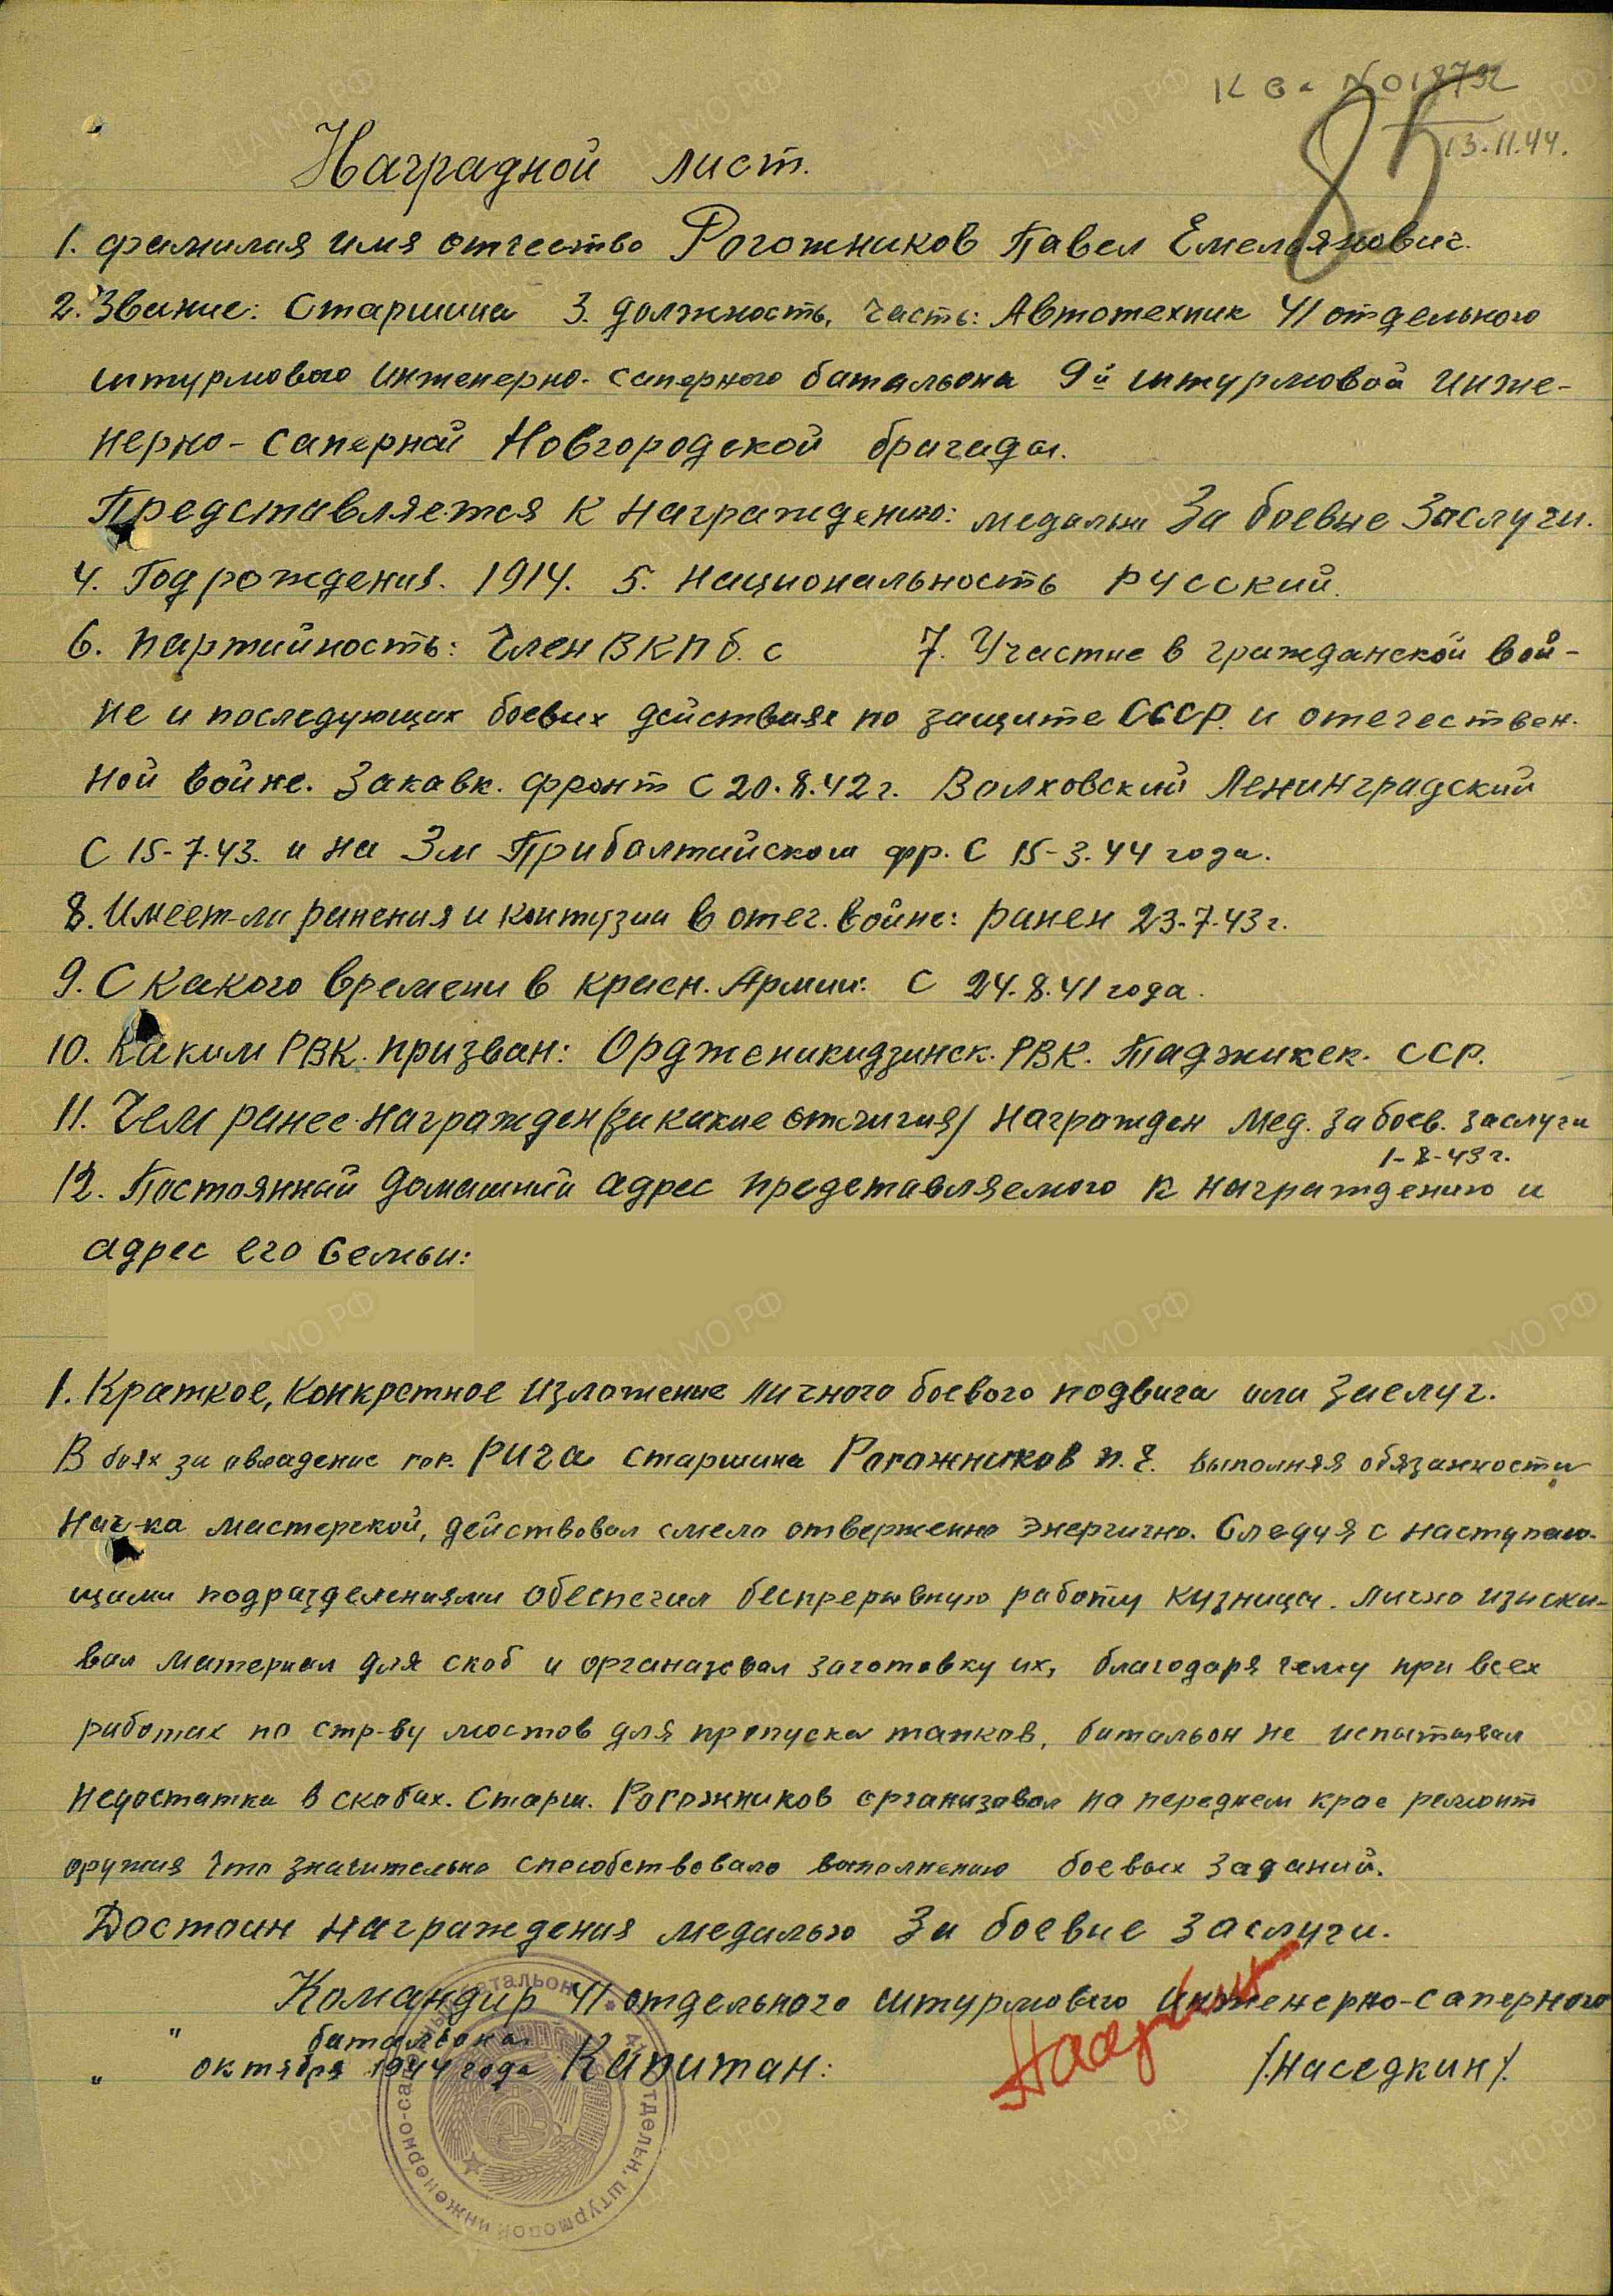 К вх № 018792
13.11.44.
85
Наградной лист.
1. фамилия имя отчество Рогожников Павел Емельянович.
2. Звание: Старшина 3. должность, часть: Автотехник 41 отдельного
штурмового инженерно-саперного батальона 9й штурмовой инже-
нерно-саперной Новгородской бригады.
Представляется к награждению: медалью За боевые Заслуги.
4. Год рождения. 1914. 5. Национальность русский.
6. партийность: Член ВКПб. с 7. Участие в гражданской вой-
не и последующих боевых действиях по защите СССР. и отечествен-
ной войне. Закавк. фронт с 20.8.42 г. Волховский Ленинградский
С 15-7.43. и на 3м Прибалтийском фр. С 15-3.44 года.
8. Имеет-ли ранения и контузии в отеч. войне: ранен 23-7.43 г.
9. С какого времени в красн. Армии: С 24.8.41 года.
10. Каким РВК. призван: Орджоникидзинск. РВК. Таджикск. ССР.
11. Чем ранее награжден (за какие отличия) Награжден Мед. за боев. заслуги
1-8-43 г.
12. Постоянный домашний адрес представляемого к награждению и
адрес его семьи:
1. Краткое, конкретное изложение личного боевого подвига или заслуг.
В боях за овладение гор. Рига старшина Рогожников П.Е. выполняя обязанности
Нач-ка мастерской, действовал смело отверженно энергично. Следуя с наступаю-
щими подразделениями обеспечил беспрерывную работу кузницы. лично изыски-
вал материал для скоб и организовал заготовку их, благодаря чему при всех
работах по стр-ву мостов для пропуска танков, батальон не испытывал
недостатка в скобах. Старш. Рогожников организовал на переднем крае ремонт
оружия что значительно способствовало выполнению боевых заданий.
Достоин награждения медалью За боевые заслуги.
Командир 41 отдельного штурмового инженерно-саперного
батальона
" " октября 1944 года Капитан: /Наседкин/.